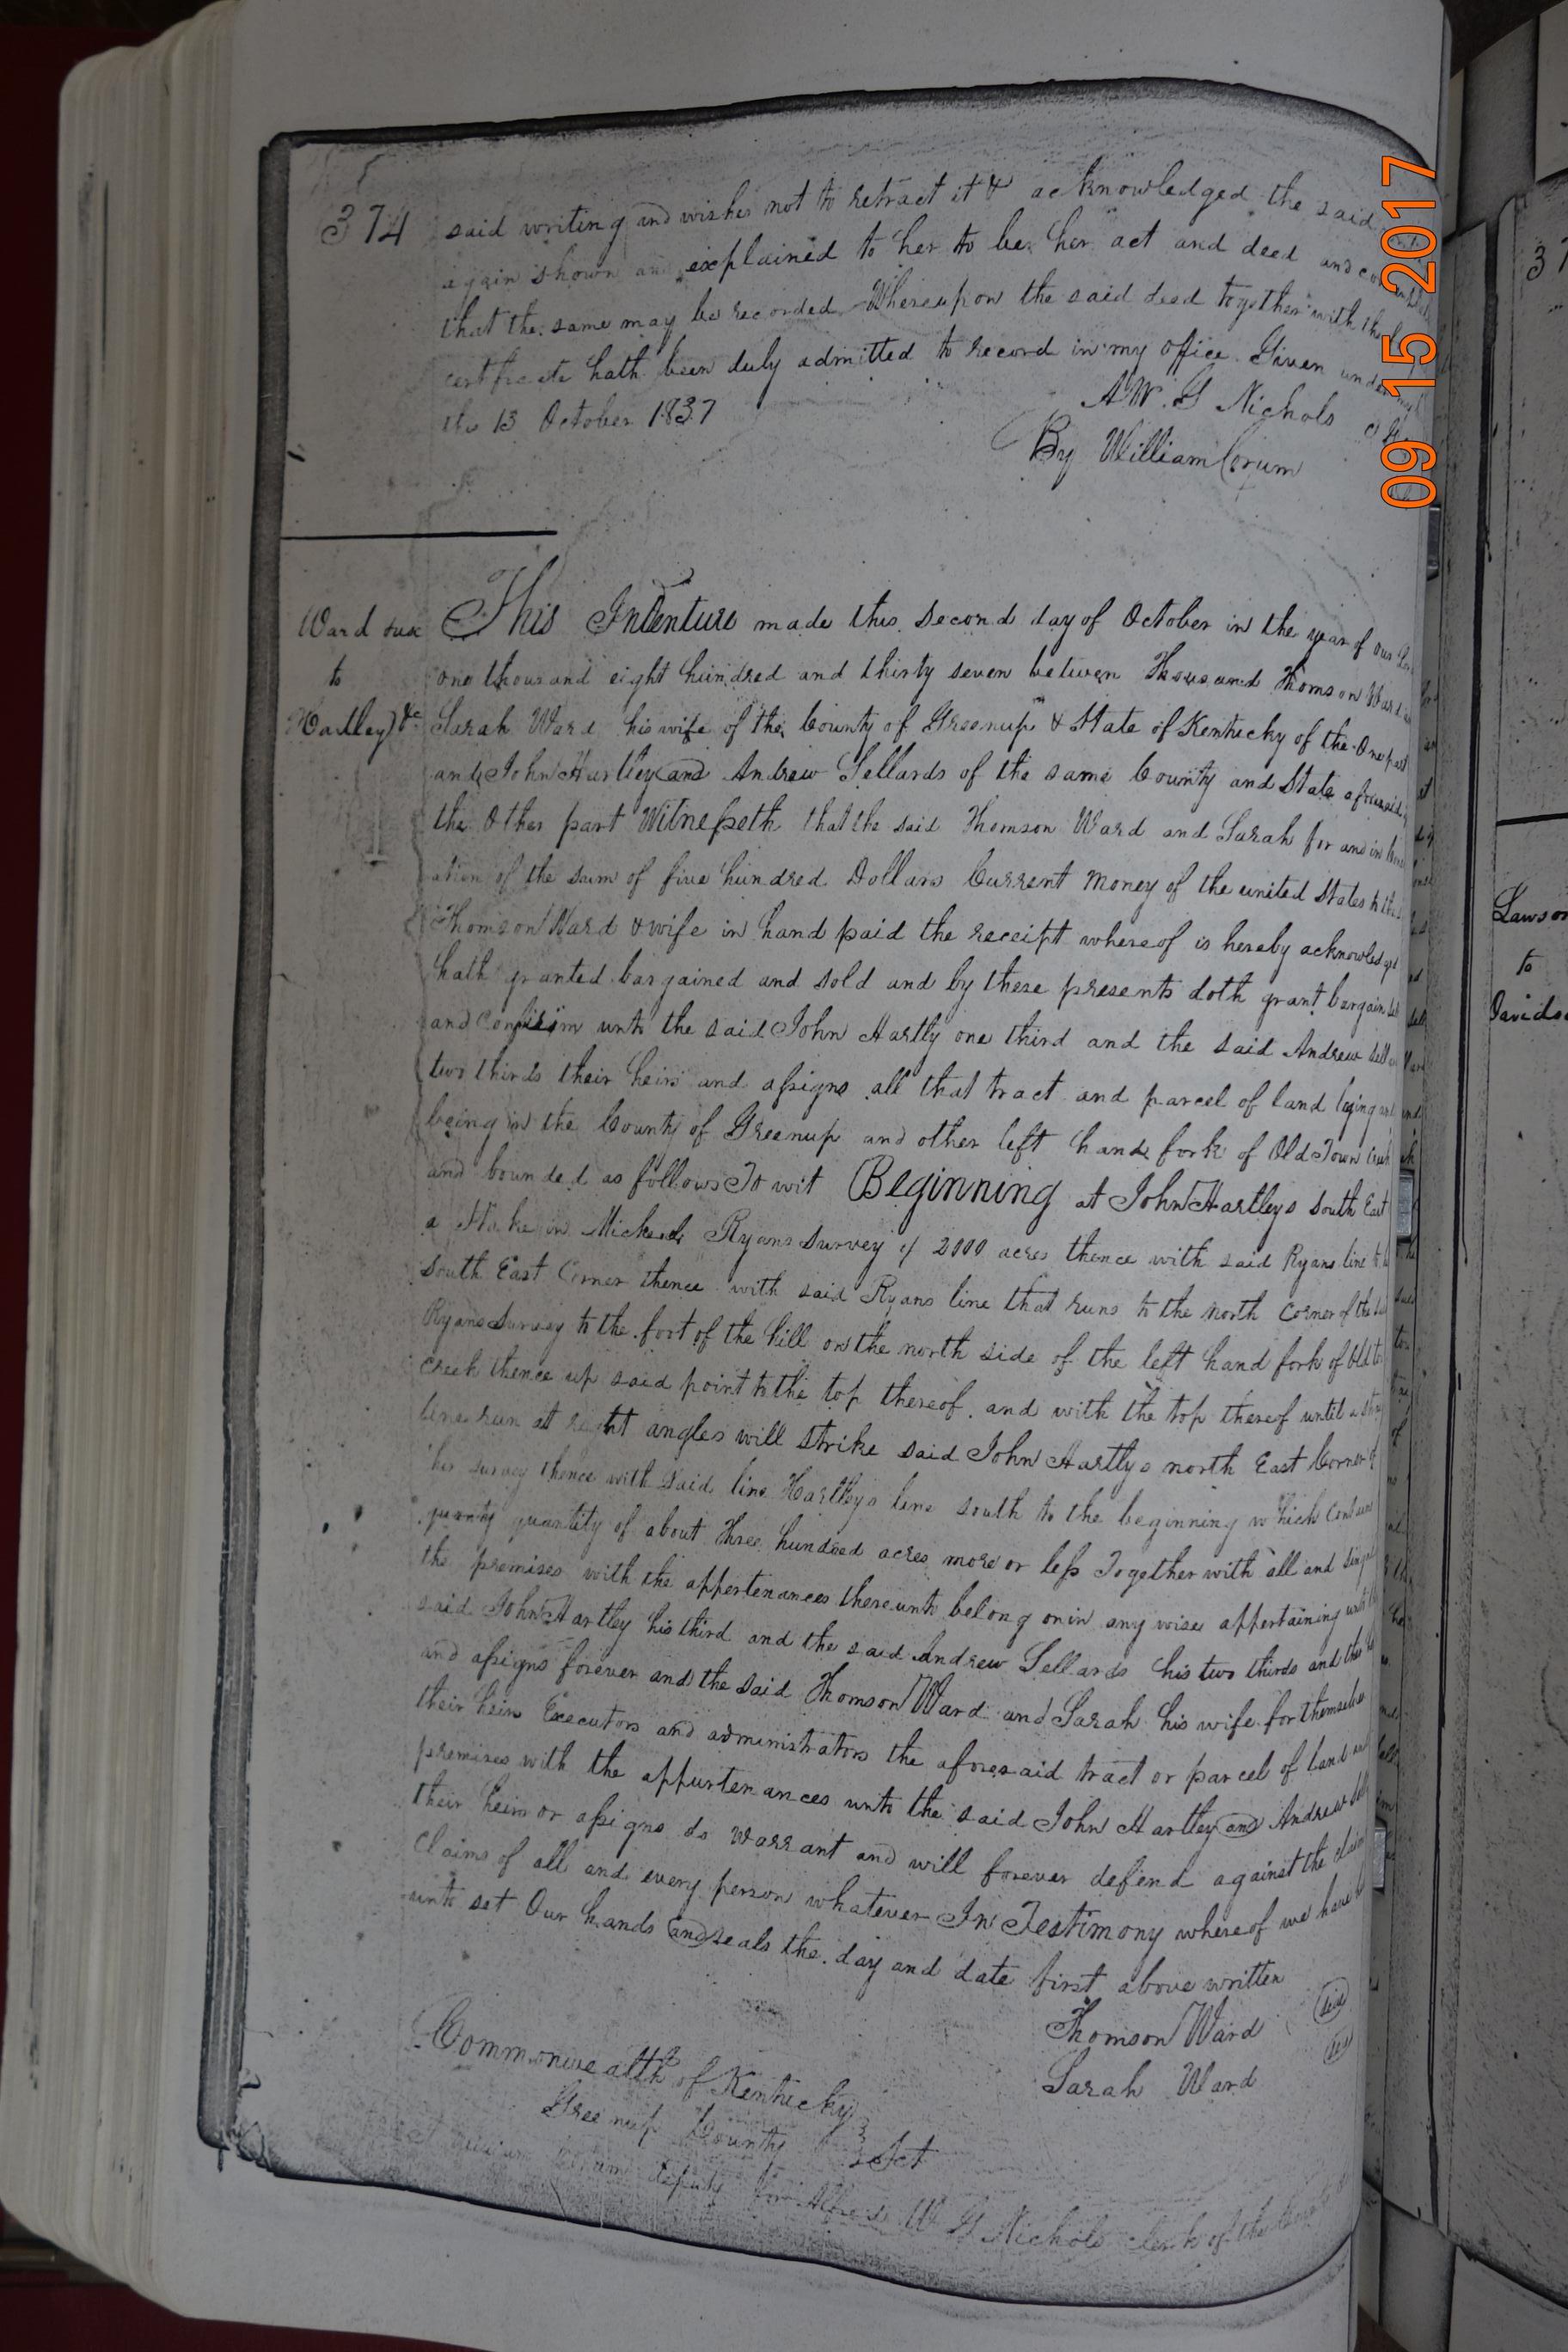 374
said writing and wishes not to retract it & acknowledged the said
again shown and explained to her to be her act and deed and
that the same may be recorded Whereupon the said deed together with
certificate hath been duly admitted to record in my office Given under my
the 13 October 1837
A W. G Nichols
By William Corum
09 15 2017
Ward &ux
to
Hartley &c
This Indenture made this second day of October in the year of our
one thousand eight hundred and thirty seven between Thomson Ward
Sarah Ward his wife of the County of Greenup & State of Kentucky of the One part
and John Hartley and Andrew Sellards of the same County and State aforesaid
the Other part Witnesseth that the said Thomson Ward and Sarah for and in
ation of the sum of five hundred Dollars Current Money of the united States to
Thomson Ward & wife in hand paid the receipt whereof is hereby acknowledged
hath granted bargained and sold and by these presents doth grant bargain
and confirm unto the said John Hartly one third and the said Andrew
two thirds their heirs and assigns all that tract and parcel of land lying
being in the County of Greenup and other left hand fork of Old Town
and bounded as follows To wit Beginning at John Hartleys South East
a Stake in Micheal Ryans survey of 2000 acres thence with said Ryans line to
South East Corner thence with said Ryans line that runs to the north Corner of the
Ryans Survey to the foot of the hill on the north side of the left hand fork of
creek thence up said point to the top thereof and with the top thereof until a
line run at right angles will strike said John Hartlys north East Corner
his survey thence with said line Hartleys line south to the beginning which
quantity of about Three hundred acres more or less Together with all and
the premises with the appertenances thereunto belong or in any wise appertaining
said John Hartley his third and the said Andrew Sellards his two thirds and
and assigns forever and the said Thomson Ward and Sarah his wife for themselves
their heirs Executors and administrators the aforesaid tract or parcel of land
premises with the appurtenances unto the said John Hartley and Andrew
their heirs or assigns do warrant and will forever defend against the
Claims of all and every person whatever In Testimony whereof we have
unto set Our hands and seals the day and date first above written
Thomson Ward
Sarah Ward
Commonwealth of Kentucky
Greenup County Sct
deputy for W G Nichols clerk of the
Lawson
to